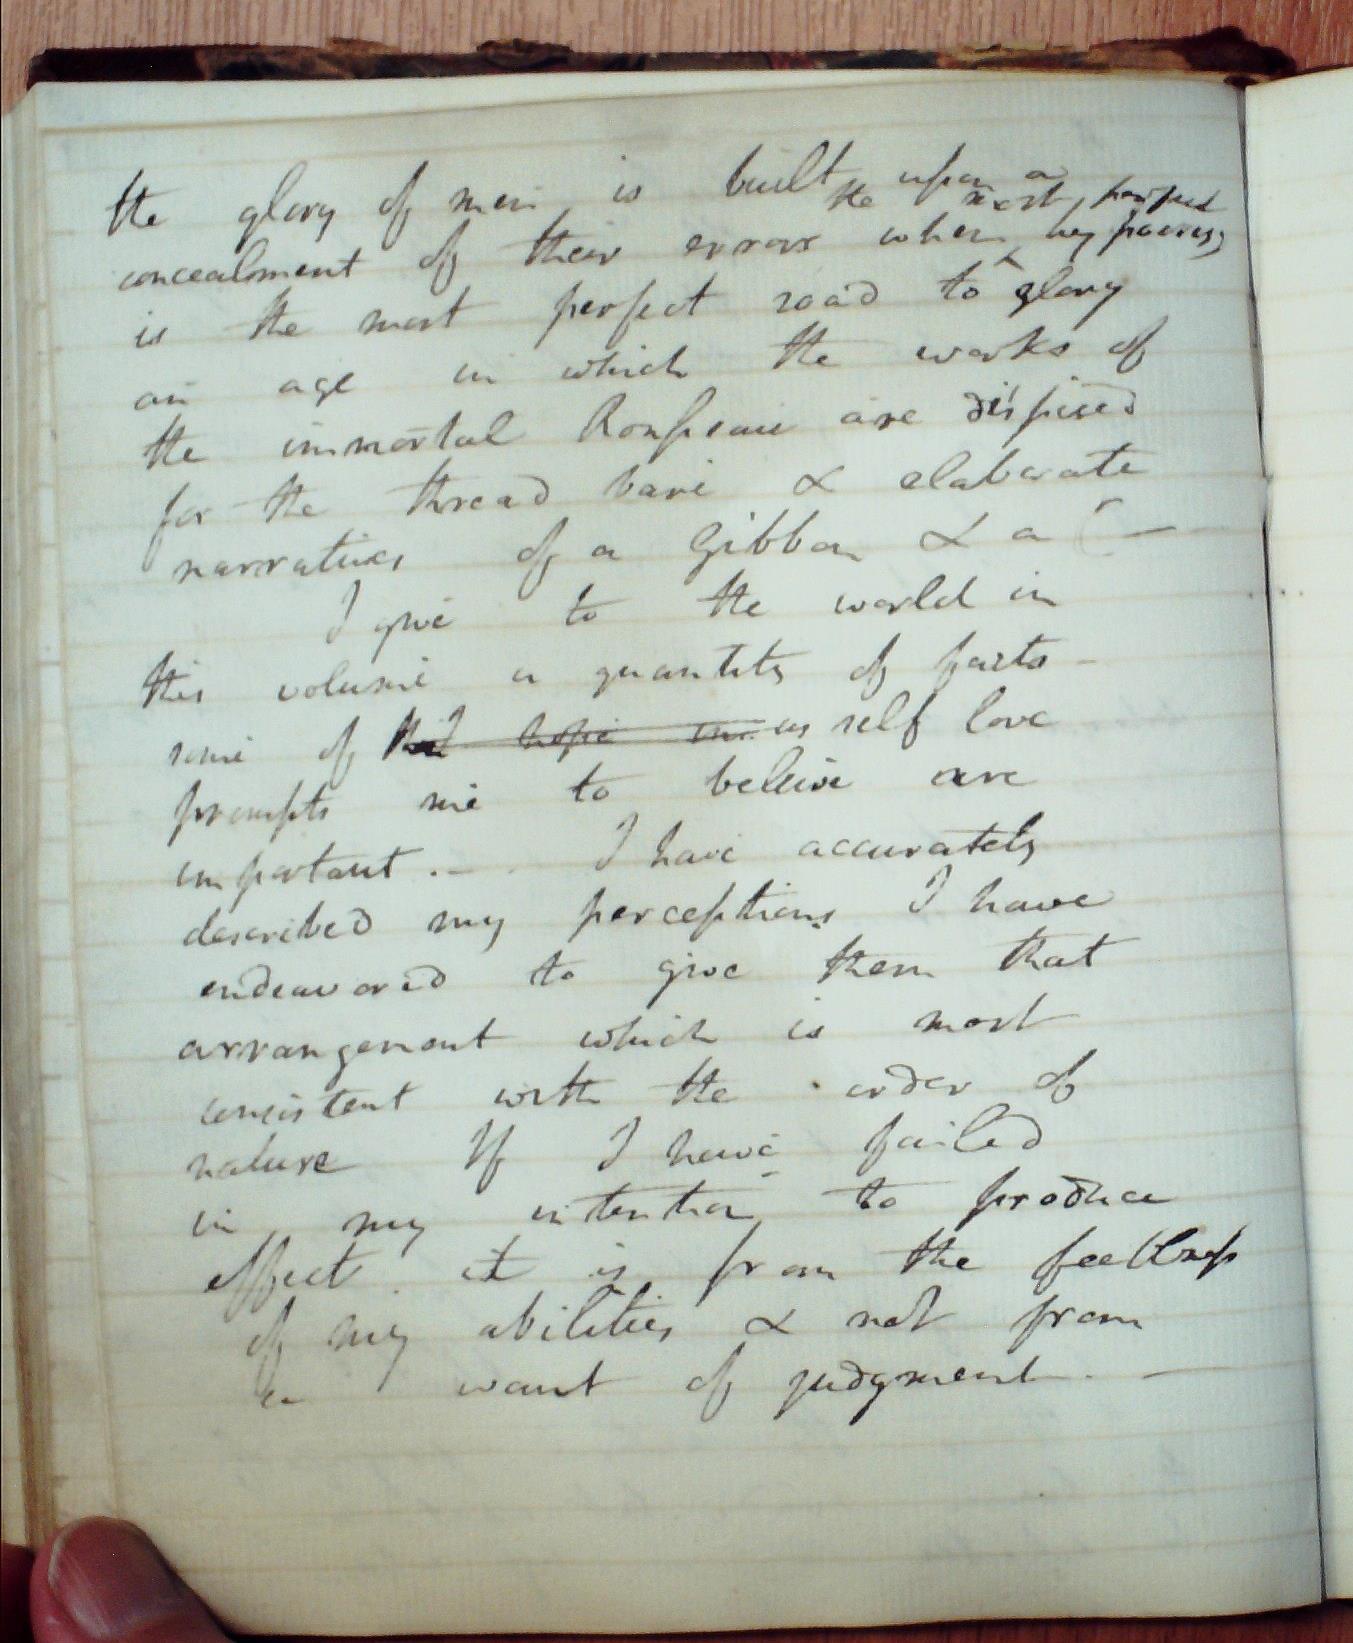 the glory of men is built upon a
the most perfect
concealment of their errors when hypocrisy
is the most perfect road to glory
an age in which the works of
the immortal Rousseau are dispised
for the thread bare & elaborate
narratives of a Gibbon & a —
I give to the world in
this volume a quantity of facts
some of that hope me as self love
prompts me to beleive are
important .— I have accurately
described my perceptions I have
endeavored to give them that
arrangement which is most
consistent with the order of
nature If I have failed
in my intention to produce
effect it is from the
of my abilities & not from
a want of judgment. —